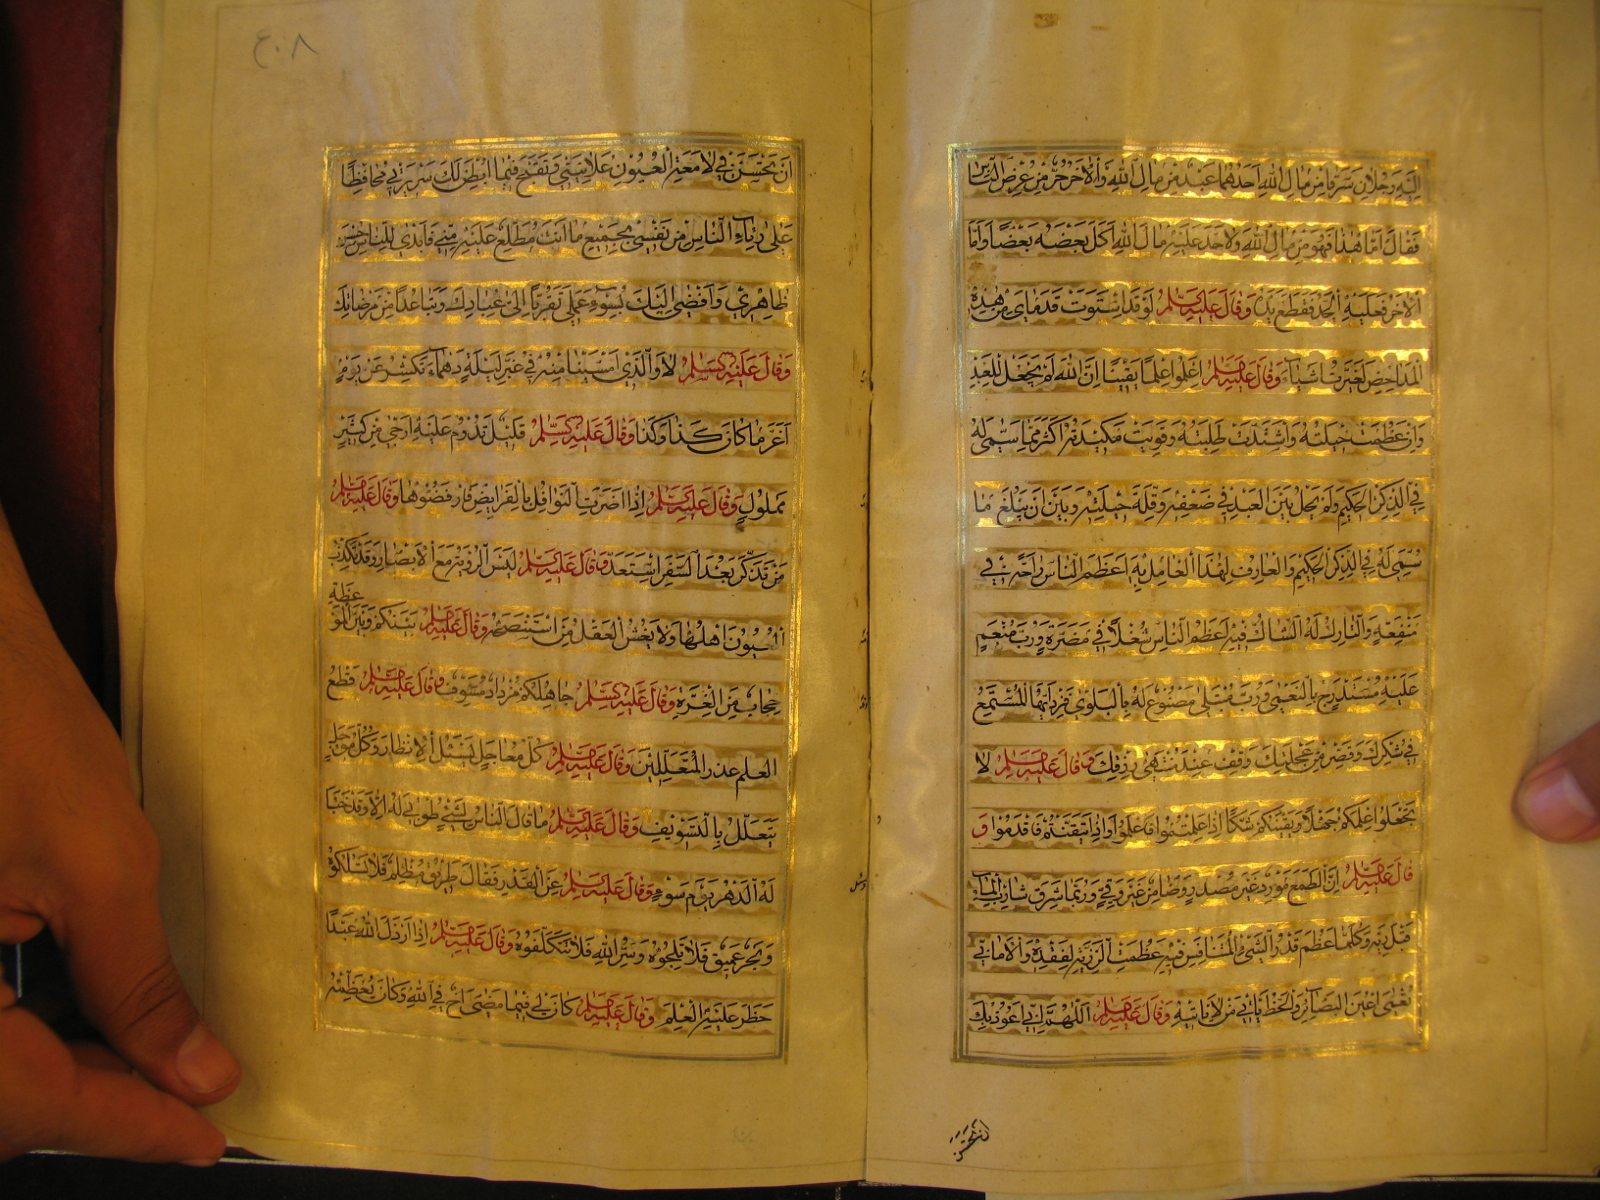 اليه رجلان سرقا من مال الله احدهما عبد من مال الله والاخر من عرض الناس
فقال اما هذا فهو من مال الله ولا حد عليه مال الله اكل بعضه بعضا واما
الاخر فعليه الحد فقطع يده وقال عليه السلم لو قد استوت قدماى من هذه
المداحض لغيرت اشياء وقال عليه السلم اعلموا علما يقينا ان الله لم يجعل للعبد
وان عظمت حيلته واشتدت طلبته وقويت مكيدته اكثر مما سمى له
في الذكر الحكيم ولم يحل بين العبد في ضعفه وقلة حيلته وبين ان يبلغ ما
سمى له في الذكر الحكيم والعارف لهذا العامل به اعظم الناس راحة في
منفعة والتارك له الشاك فيه اعظم الناس شغلا في مضرة ورب منعم
عليه مستدرج بالنعمى ورب مبتلى مصنوع له بالبلوى فزد ايها المستمع
في شكرك وقصر من عجلتك وقف عند منتهى رزقك وقال عليه السلم لا
تجعلوا علمكم جهلا ويقينكم شكا اذا علمتم فاعملوا واذا تيقنتم فاقدموا و
قال عليه السلم ان الطمع مورد غير مصدر وضامن غير وفي وربما شرق شارب الماء
قبل ريه وكلما عظم قدر الشيء المتنافس فيه عظمت الرزية لفقده والاماني
تعمى اعين البصاير والحظ ياتي من لا ياتيه وقال عليه السلم اللهم اني اعوذ بك
ان تحسن
٤٠٨
ان تحسن في لامعة العيون علانيتي وتقبح فيما ابطن لك سريرتي محافظا
على رئاء الناس من نفسي بجميع ما انت مطلع عليه مني فابدي للناس حسن
ظاهري وافضى اليك بسوء عملي تقربا الى عبادك وتباعدا من مرضاتك
وقال عليه السلم لا والذي امسينا منه في غبر ليلة دهماء تكشر عن يوم
اغر ما كان كذا وكذا وقال عليه السلم قليل تدوم عليه ارجى من كثير
مملول وقال عليه السلم اذا اضرت النوافل بالفرايض فارفضوها وقال عليه السلم
من تذكر بعد السفر استعد وقال عليه السلم ليس الروية مع الابصار وقد تكذب
العيون اهلها ولا يغش العقل من استنصحه وقال عليه السلم بينكم وبين الموعظة
حجاب من الغرة وقال عليه السلم جاهلكم مزداد مسوف وقال عليه السلم قطع
العلم عذر المتعللين وقال عليه السلم كل معاجل يسئل الانظار وكل موجل
يتعلل بالتسويف وقال عليه السلم ما قال الناس لشيء طوبى له الا وقد خبا
له الدهر يوم سوء وقال عليه السلم عن القدر فقال طريق مظلم فلا تسلكوه
وبحر عميق فلا تلجوه وسر الله فلا تتكلفوه وقال عليه السلم اذا ارذل الله عبدا
حظر عليه العلم وقال عليه السلم كان لي فيما مضى اخ في الله وكان يعظمه